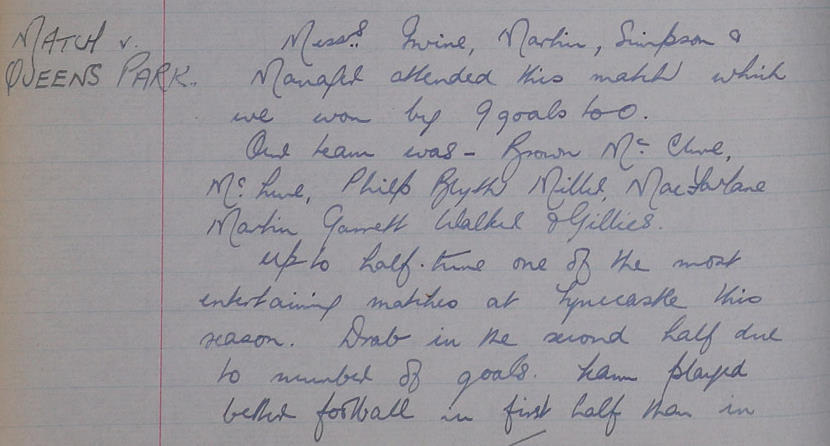 MATCH v.
QUEENS PARK.
Messrs. Irvine, Martin, Simpson &
Manager attended this match which
we won by 9 goals to 0.
Our team was - Brown McClure,
Philp Blyth Miller, MacFarlane
Martin Garrett Walker & Gillies.
up to half-time one of the most
entertaining matches at Tynecastle this
season. Drab in the second half due
to number of goals. Team played
better football in first half than in